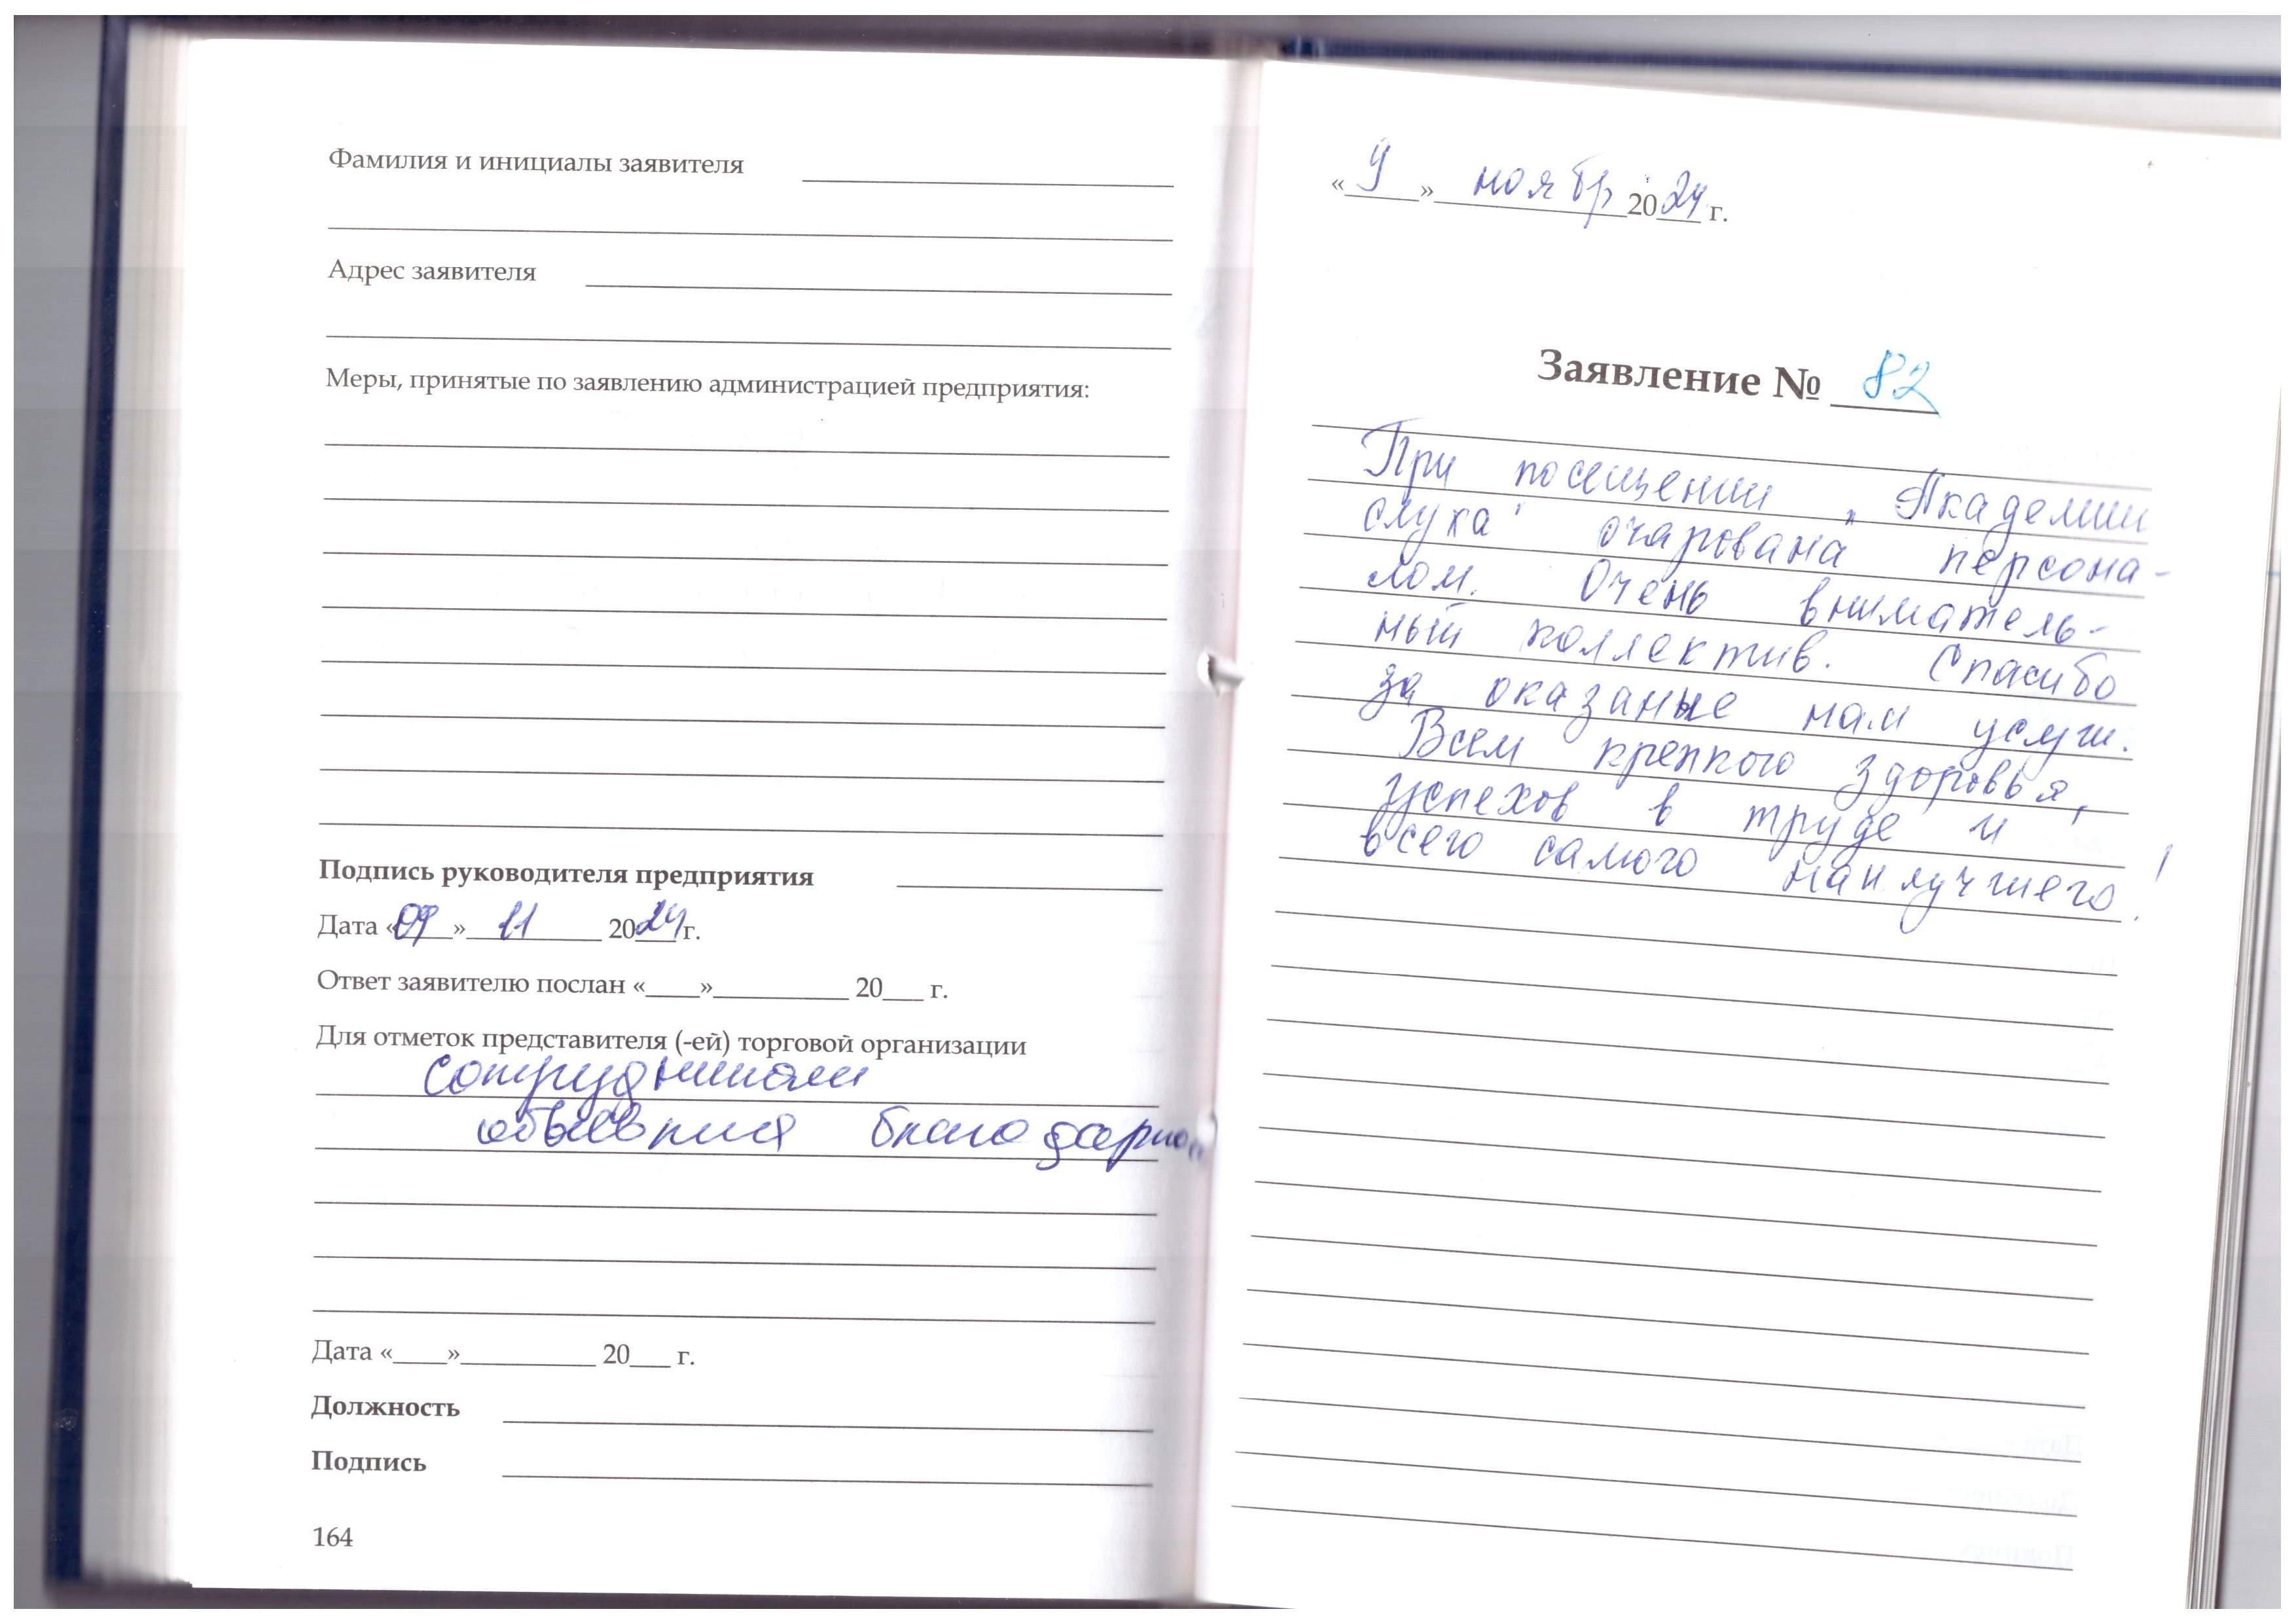 Фамилия и инициалы заявителя
Адрес заявителя
Меры, принятые по заявлению администрацией предприятия:
Подпись руководителя предприятия
Дата «09» 11 2024 г.
Ответ заявителю послан «____»__________ 20___ г.
Для отметок представителя (-ей) торговой организации
сотрудникам
благодарнос
Дата «____»__________ 20___ г.
Должность
Подпись
164
«9» ноябр 2024 г.
Заявление № 82
При посещении „Академии
слуха" очарована персона-
лом. Очень вниматель-
ный коллектив. Спасибо
за оказаные нам услуги.
Всем крепкого здоровья,
успехов в труде и
всего самого наилучшего!